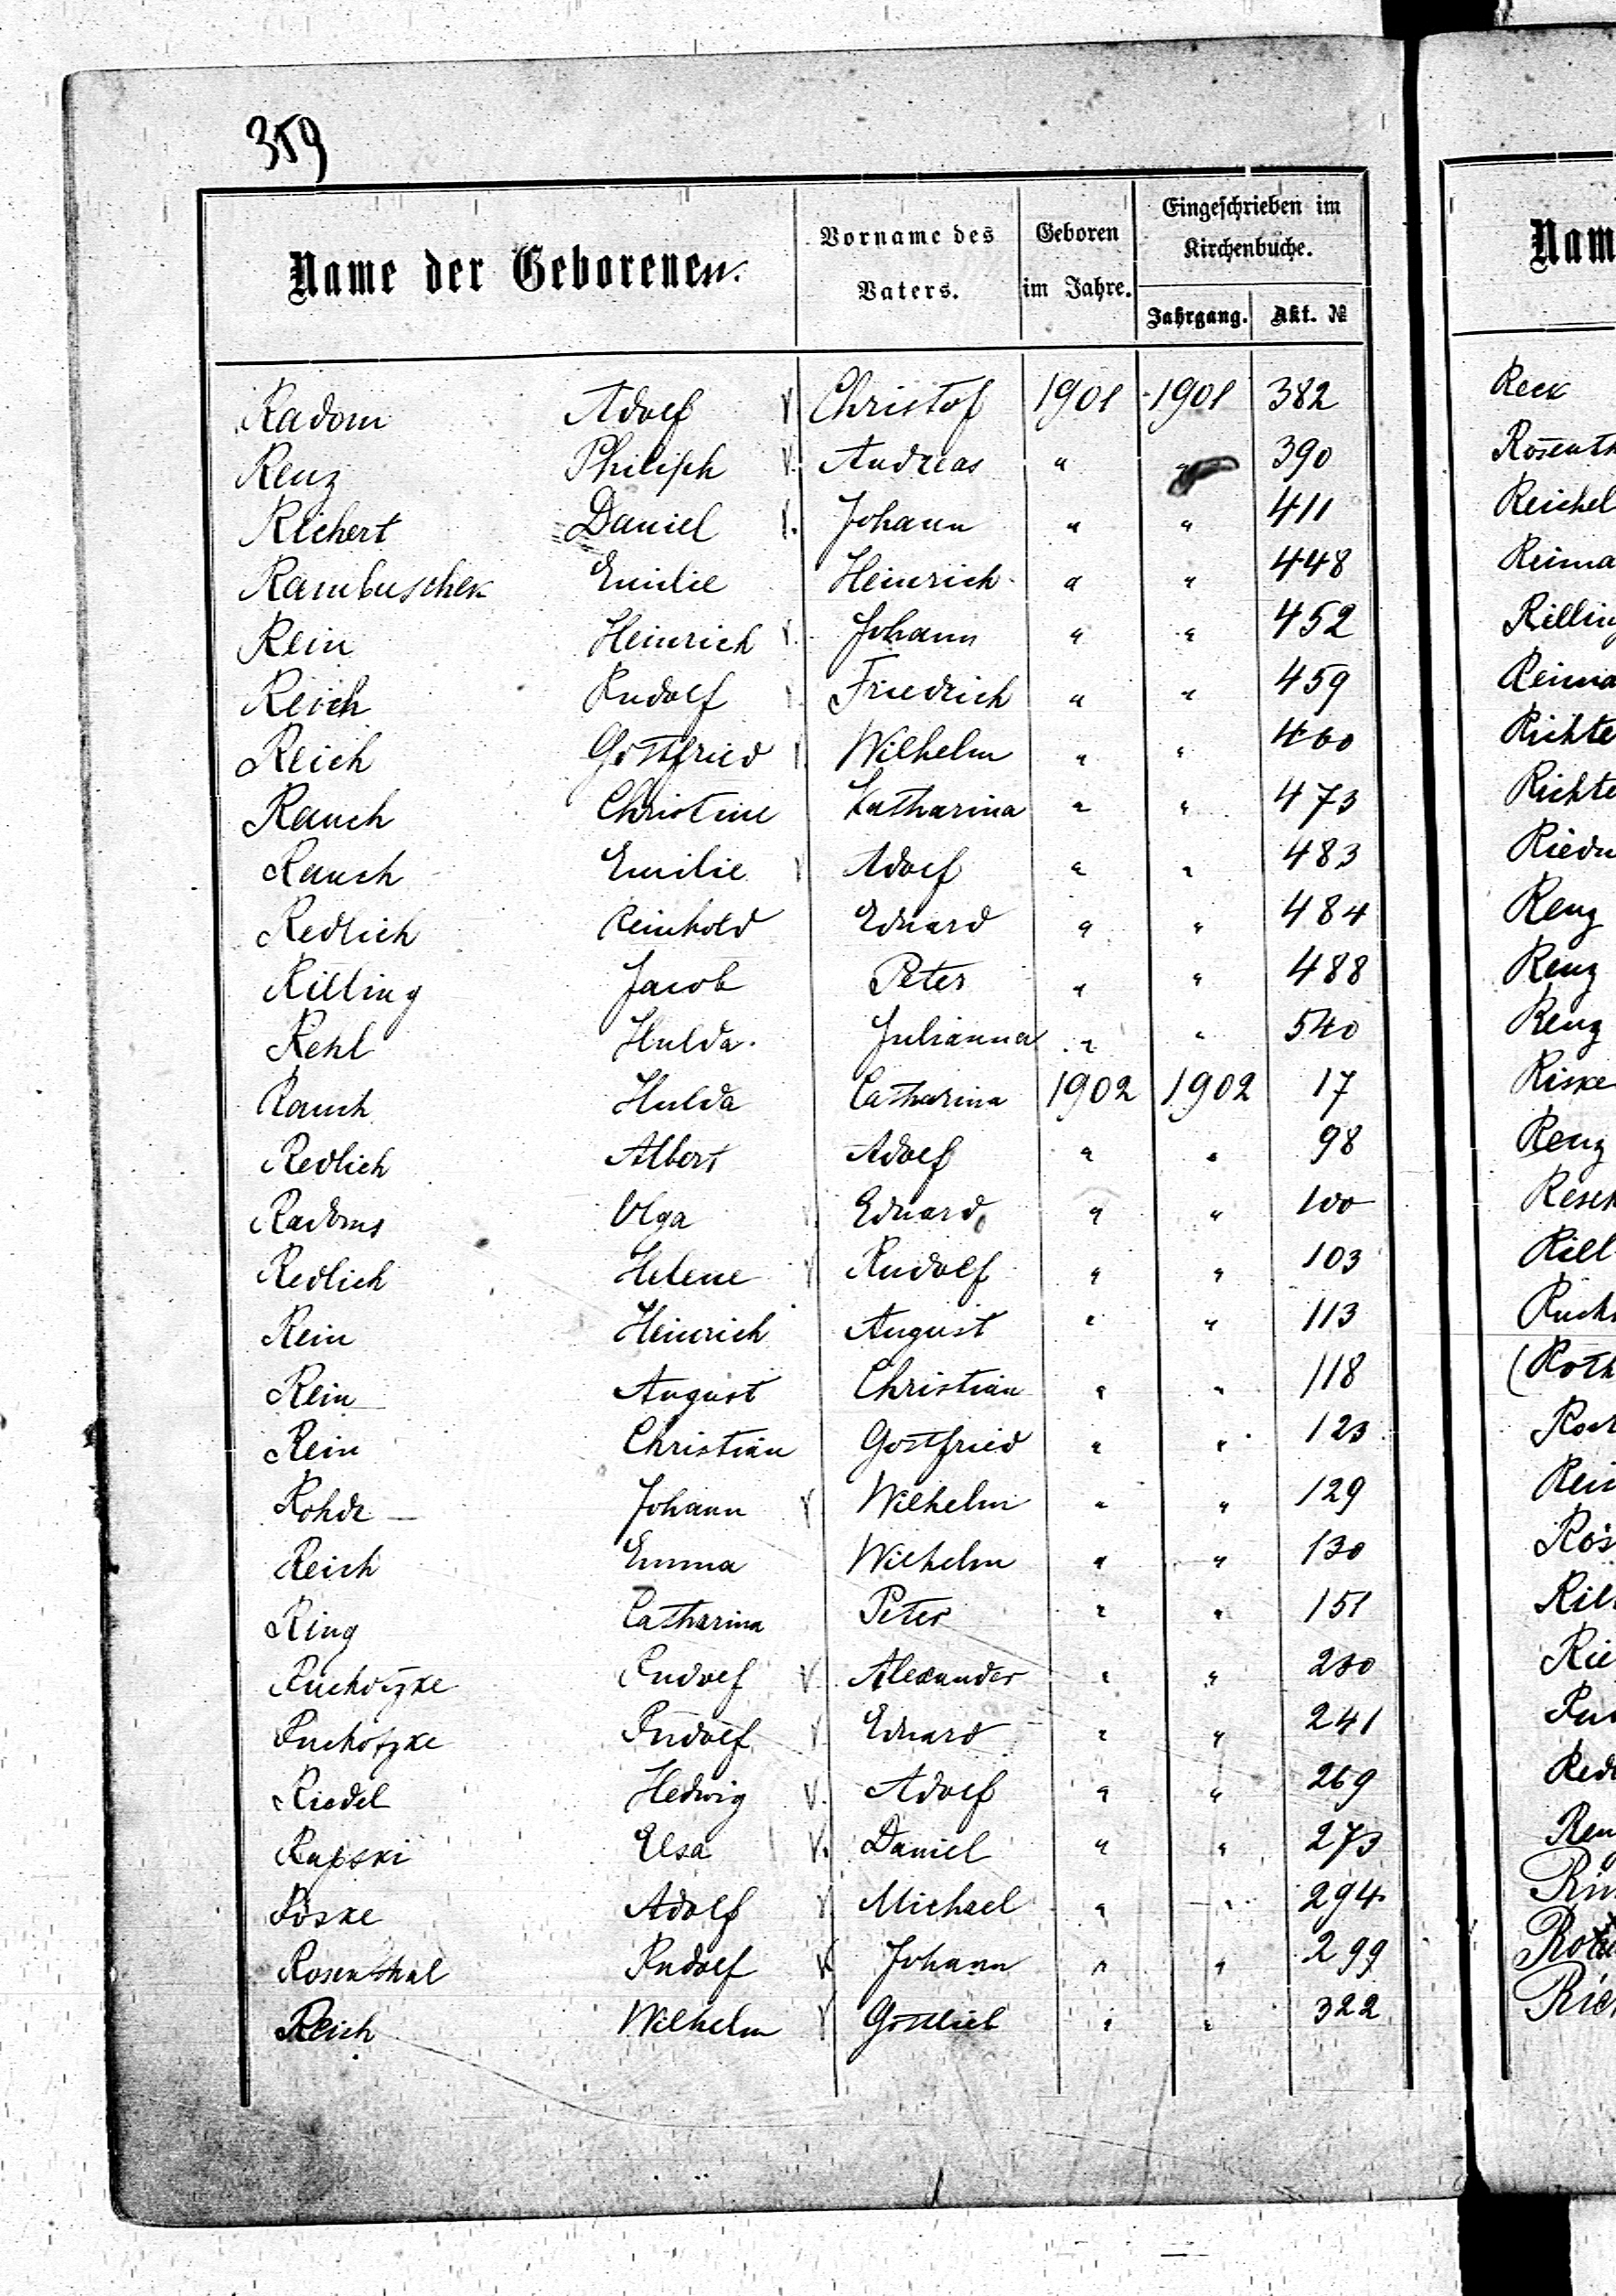 359
Name der Geborenen. Vorname des Vaters. Geboren im Jahre. Eingeschrieben im Kirchenbuche. Jahrgang. Akt. №
Radom Adolf V Christof 1901 1901 382
Renz Philiph V. Andreas " " 390
Richert Daniel V. Johann " " 411
Rambuschek Emilie Heinrich " " 448
Rein Heinrich V. Johann " " 452
Reich Rudolf Friedrich " " 459
Reich Gottfried V. Wilhelm " " 460
Rauch Christine Katharina " " 473
Rauch Emilie V Adolf " " 483
Redlich Reinhold Eduard " " 484
Rilling Jacob Peter " " 488
Rehl Hulda. Julianna " " 540
Rauch Hulda Catharina 1902 1902 17
Redlich Albert Adolf " " 98
Radoms Olga Eduard " " 100
Redlich Helene V Rudolf " " 103
Rein Heinrich August " " 113
Rein August Christian " " 118
Rein Christian Gottfried " " 123
Rohde Johann V Wilhelm " " 129
Reich Emma Wilhelm " " 130
Ring Catharina Peter " " 151
Rudolf V. Alexander " "
Rudolf V Eduard " " 241
Riedel Hedwig V. Adolf " " 269
Rupski Elsa V. Daniel " " 273
Röske Adolf V Michael " " 294
Rosenthal Rudolf V Johann " " 299
Reich Wilhelm V Gottlieb " " 322
Nam
Reck
Rosenth
Reichel
Reima
Rilling
Reima
Richte
Richte
Renz
Renz
Renz
Riske
Renz
Rill
(Roth